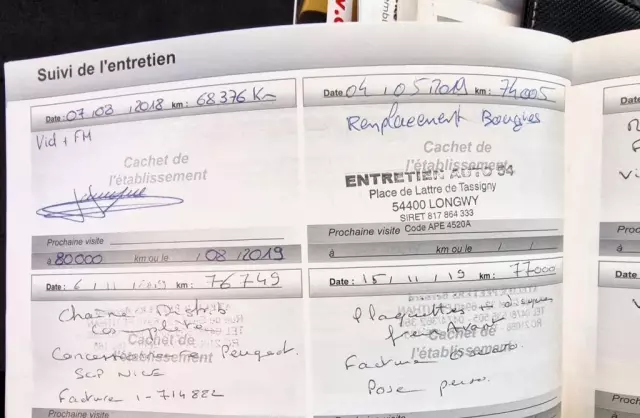 Suivi de l'entretien
Date : 07 / 08 / 2018 km : 68376 Km
Vid + FM
Cachet de
l'établissement
Prochaine visite
à 80000 km ou le / 08 / 2019
Date : 04 / 05 / 2019 km : 74005
Remplacement Bougies
Cachet de
l'établissement
ENTRETIEN AUTO 54
Place de Lattre de Tassigny
54400 LONGWY
SIRET 817 864 333
Prochaine visite Code APE 4520A
à km ou le / /
Date : 6 / 11 / 2019 km : 76749
Chaîne Distrib
complète
Concessionnaire Peugeot
Cachet de
l'établissement
SCP NICE
Facture 1-714882
Prochaine
Date : 15 / 11 / 19 km : 77000
Plaquettes + disques
frein Avant
Cachet de
Facture
l'établissement
Pose
Prochaine